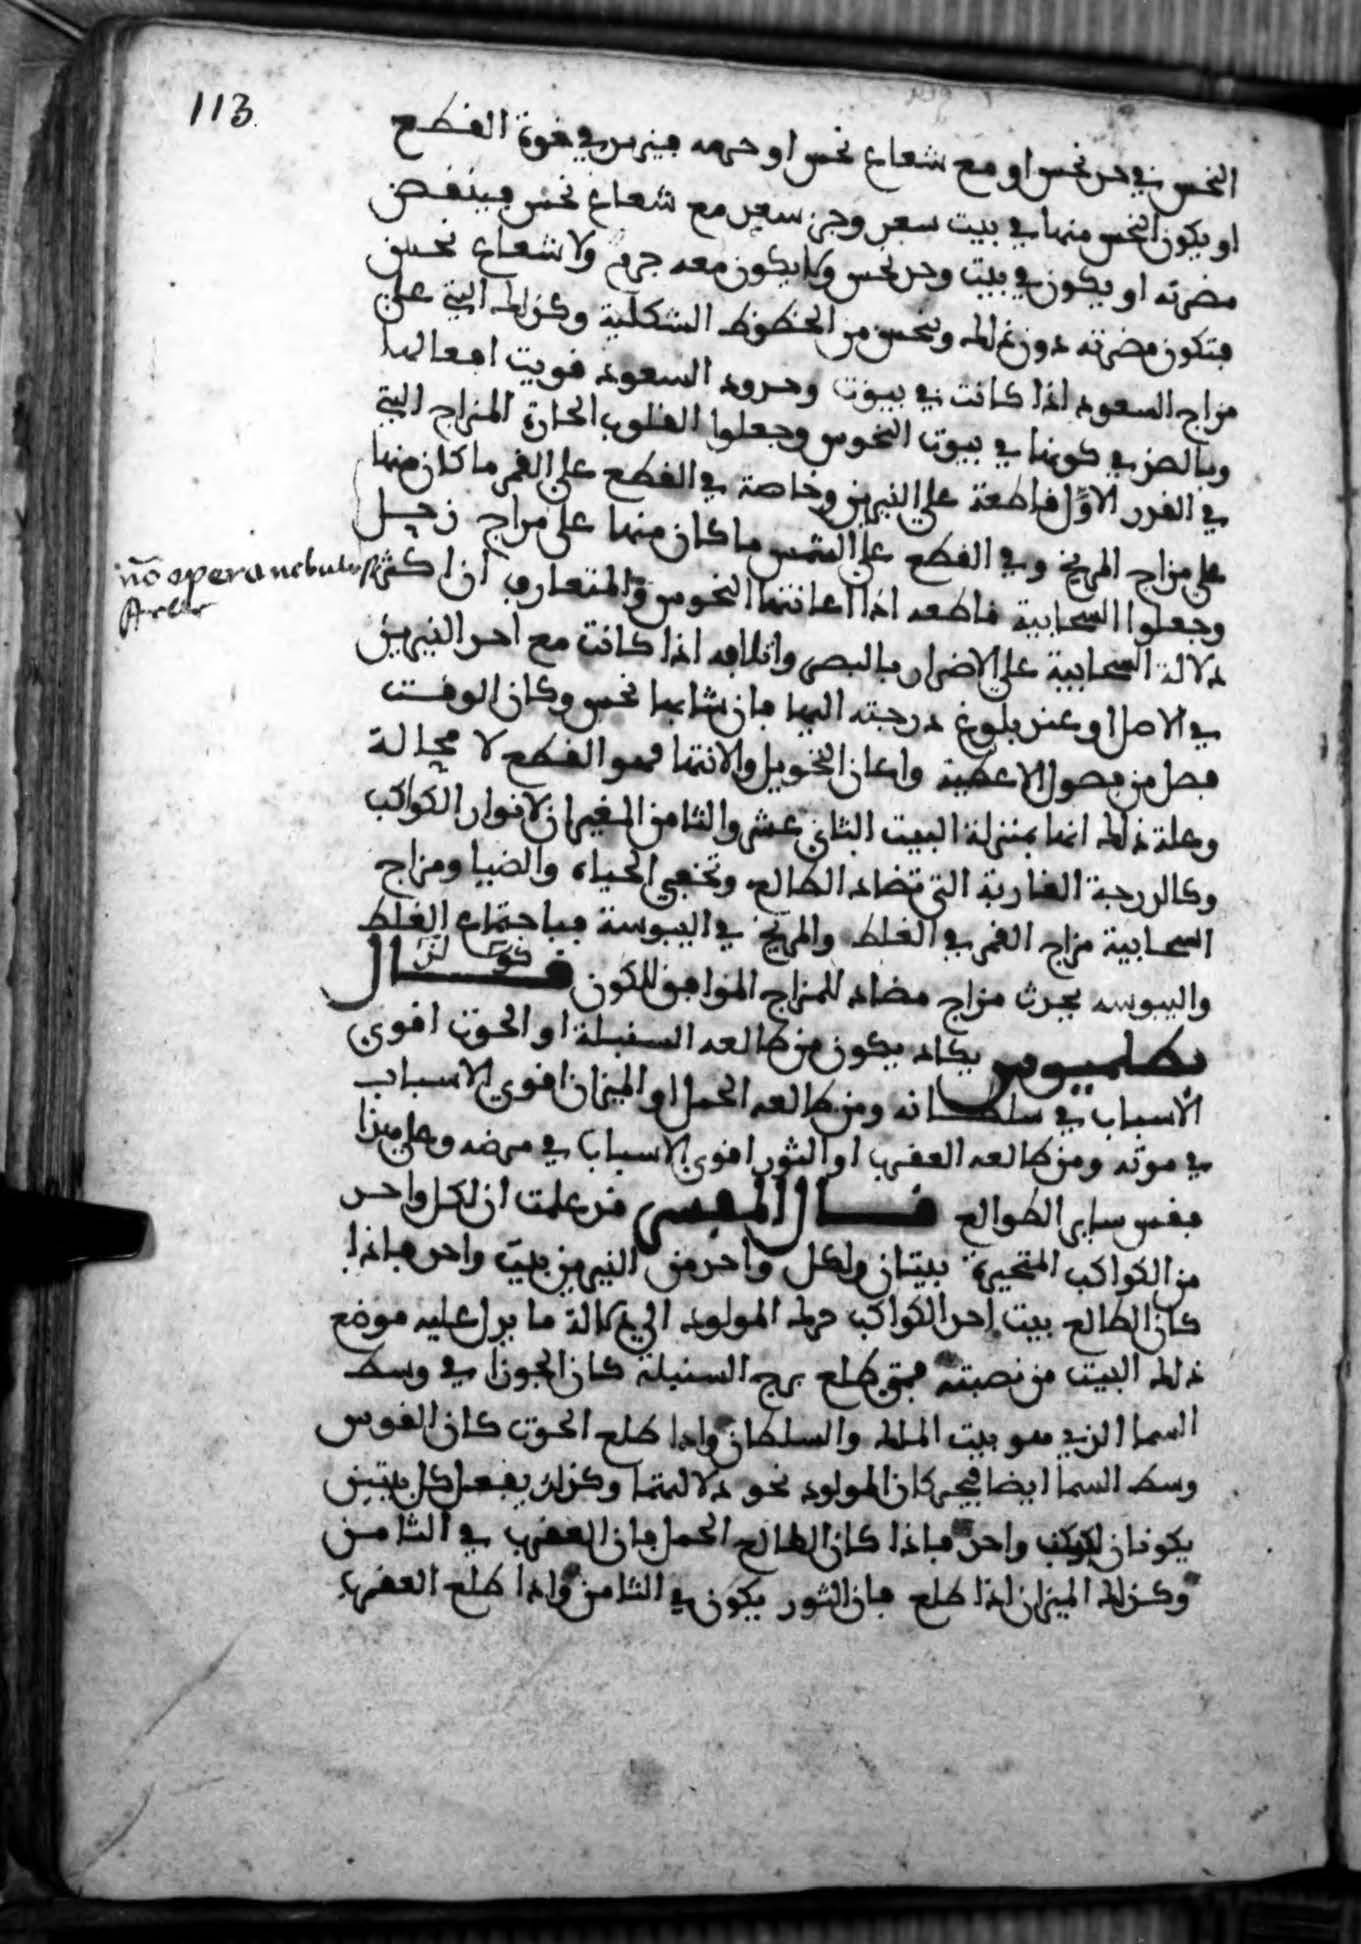 113
النحس في حد نحس او مع شعاع نحس او جرمه فيزيد في قوة القطع
او يكون النحس منها في بيت سعد وحد سعد مع شعاع نحس فينقص
مضرته او يكون في بيت وحد نحس ولا يكون معه جرم ولا شعاع نحس
فتكون مضرته دون ذلك وينحس من الحظوظ الشكلية وكذلك التي على
مزاج السعود اذا كانت في بيوت وحدود السعود قويت افعالها
وبالضد في كونها في بيوت النحوس وجعلوا القلوب الحارة المزاج التي
في القدر الاول قاطعة على النيرين وخاصة في القطع على القمر ما كان منها
على مزاج المريخ وفي القطع على الشمس ما كان منها على مزاج زحل
وجعلوا السحابية قاطعه اذا اعانتها النحوس والمتعارف ان اكثر
دلالة السحابية على الاضرار بالبصر واتلافه اذا كانت مع احد النيرين
في الاصل او عند بلوغ درجته اليها فان شابها نحس وكان الوقت
فصل من فصول الاعطية واعان التحويل والانتها فهو القطع لا محالة
وعلة ذلك انها بمنزلة البيت الثاني عشر والثامن المغيران لانوار الكواكب
وكالدرجة الغاربة التي تضاد الطالع وتخفي الحياه والضيا ومزاج
السحابية مزاج القمر في الغلظ والمريخ في اليبوسة فباجتماع الغلظ
واليبوسه يحدث مزاج مضاد للمزاج الموافق للكون قال
بطلميوس يكاد يكون من طالعه السنبلة او الحوت اقوى
الاسباب في سلطانه ومن طالعه الحمل او الميزان اقوى الاسباب
في موته ومن طالعه العقرب او الثور اقوى الاسباب في مرضه وعلى هذا
فقس ساير الطوالع قال المفسر قد علمت ان لكل واحد
من الكواكب المتحيرة بيتان ولكل واحد من النيرين بيت واحد فاذا
كان الطالع بيت احد الكواكب حرك المولود الي دلالة ما يدل عليه موضع
ذلك البيت من نصبته فمتى طلع برج السنبلة كان الجوزا في وسط
السما الذي هو بيت الملك والسلطان واذا طلع الحوت كان القوس
وسط السما ايضا فيحركان المولود نحو دلالتهما وكذلك يفعل كل بيتين
يكونان لكوكب واحد فاذا كان الطالع الحمل فان العقرب في الثامن
وكذلك الميزان اذا طلع فان الثور يكون في الثامن واذا طلع العقرب